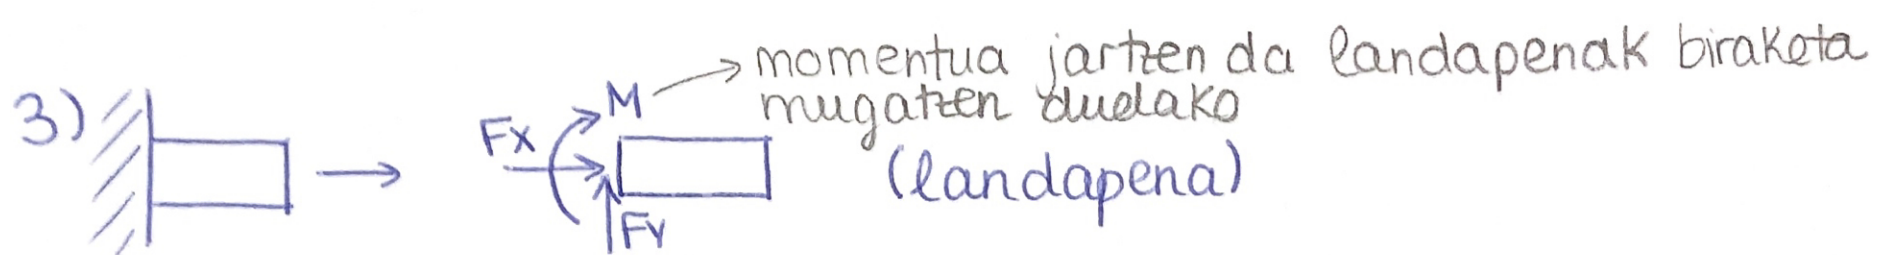 momentua jartzen da landapenak biraketa
M
mugatzen duelako
3)
Fx
(landapena)
Fy